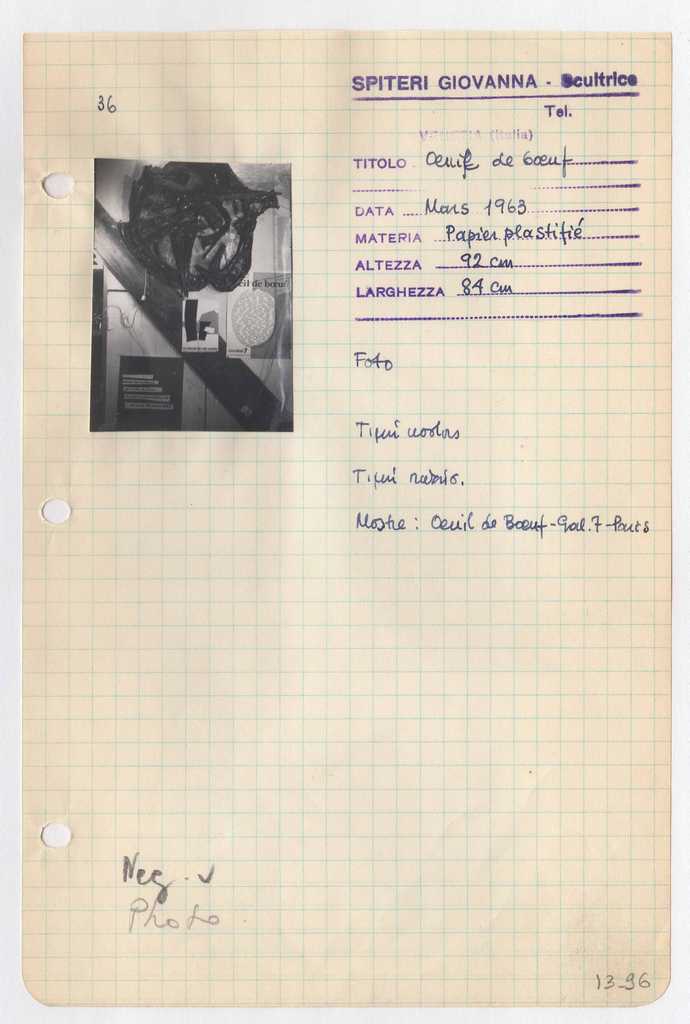 36
SPITERI GIOVANNA - Scultrice
Tel.
VENEZIA (Italia)
TITOLO Oeuil de boeuf
DATA Mars 1963
MATERIA Papier plastifié
ALTEZZA 92 cm
LARGHEZZA 84 cm
œil de bœuf
Foto
Tipi
Tipi
Mostre : Oeuil de Boeuf - Gal. 7 - Paris
Neg. v
Photo
13_96